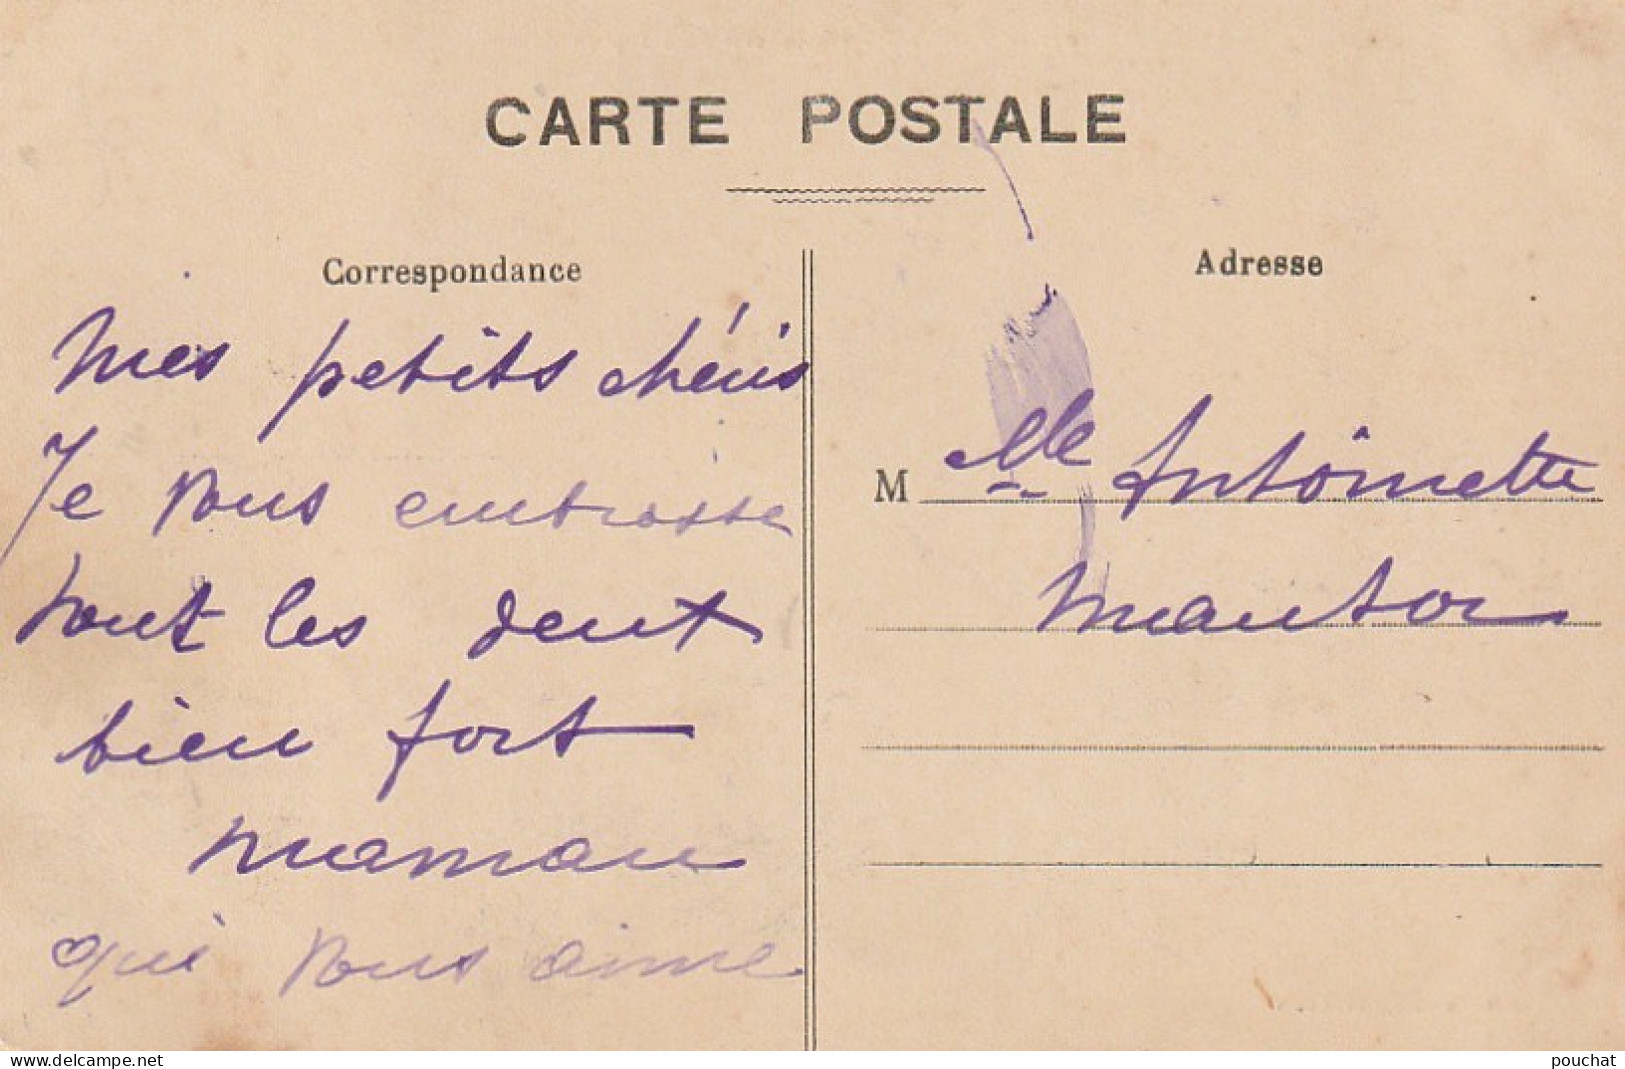 CARTE POSTALE
Correspondance
Mes petits chéris
Je vous embrasse
tout les deut
bien fort
maman
qui vous aime
Adresse
M lle Antoinette
www.delcampe.net
pouchat